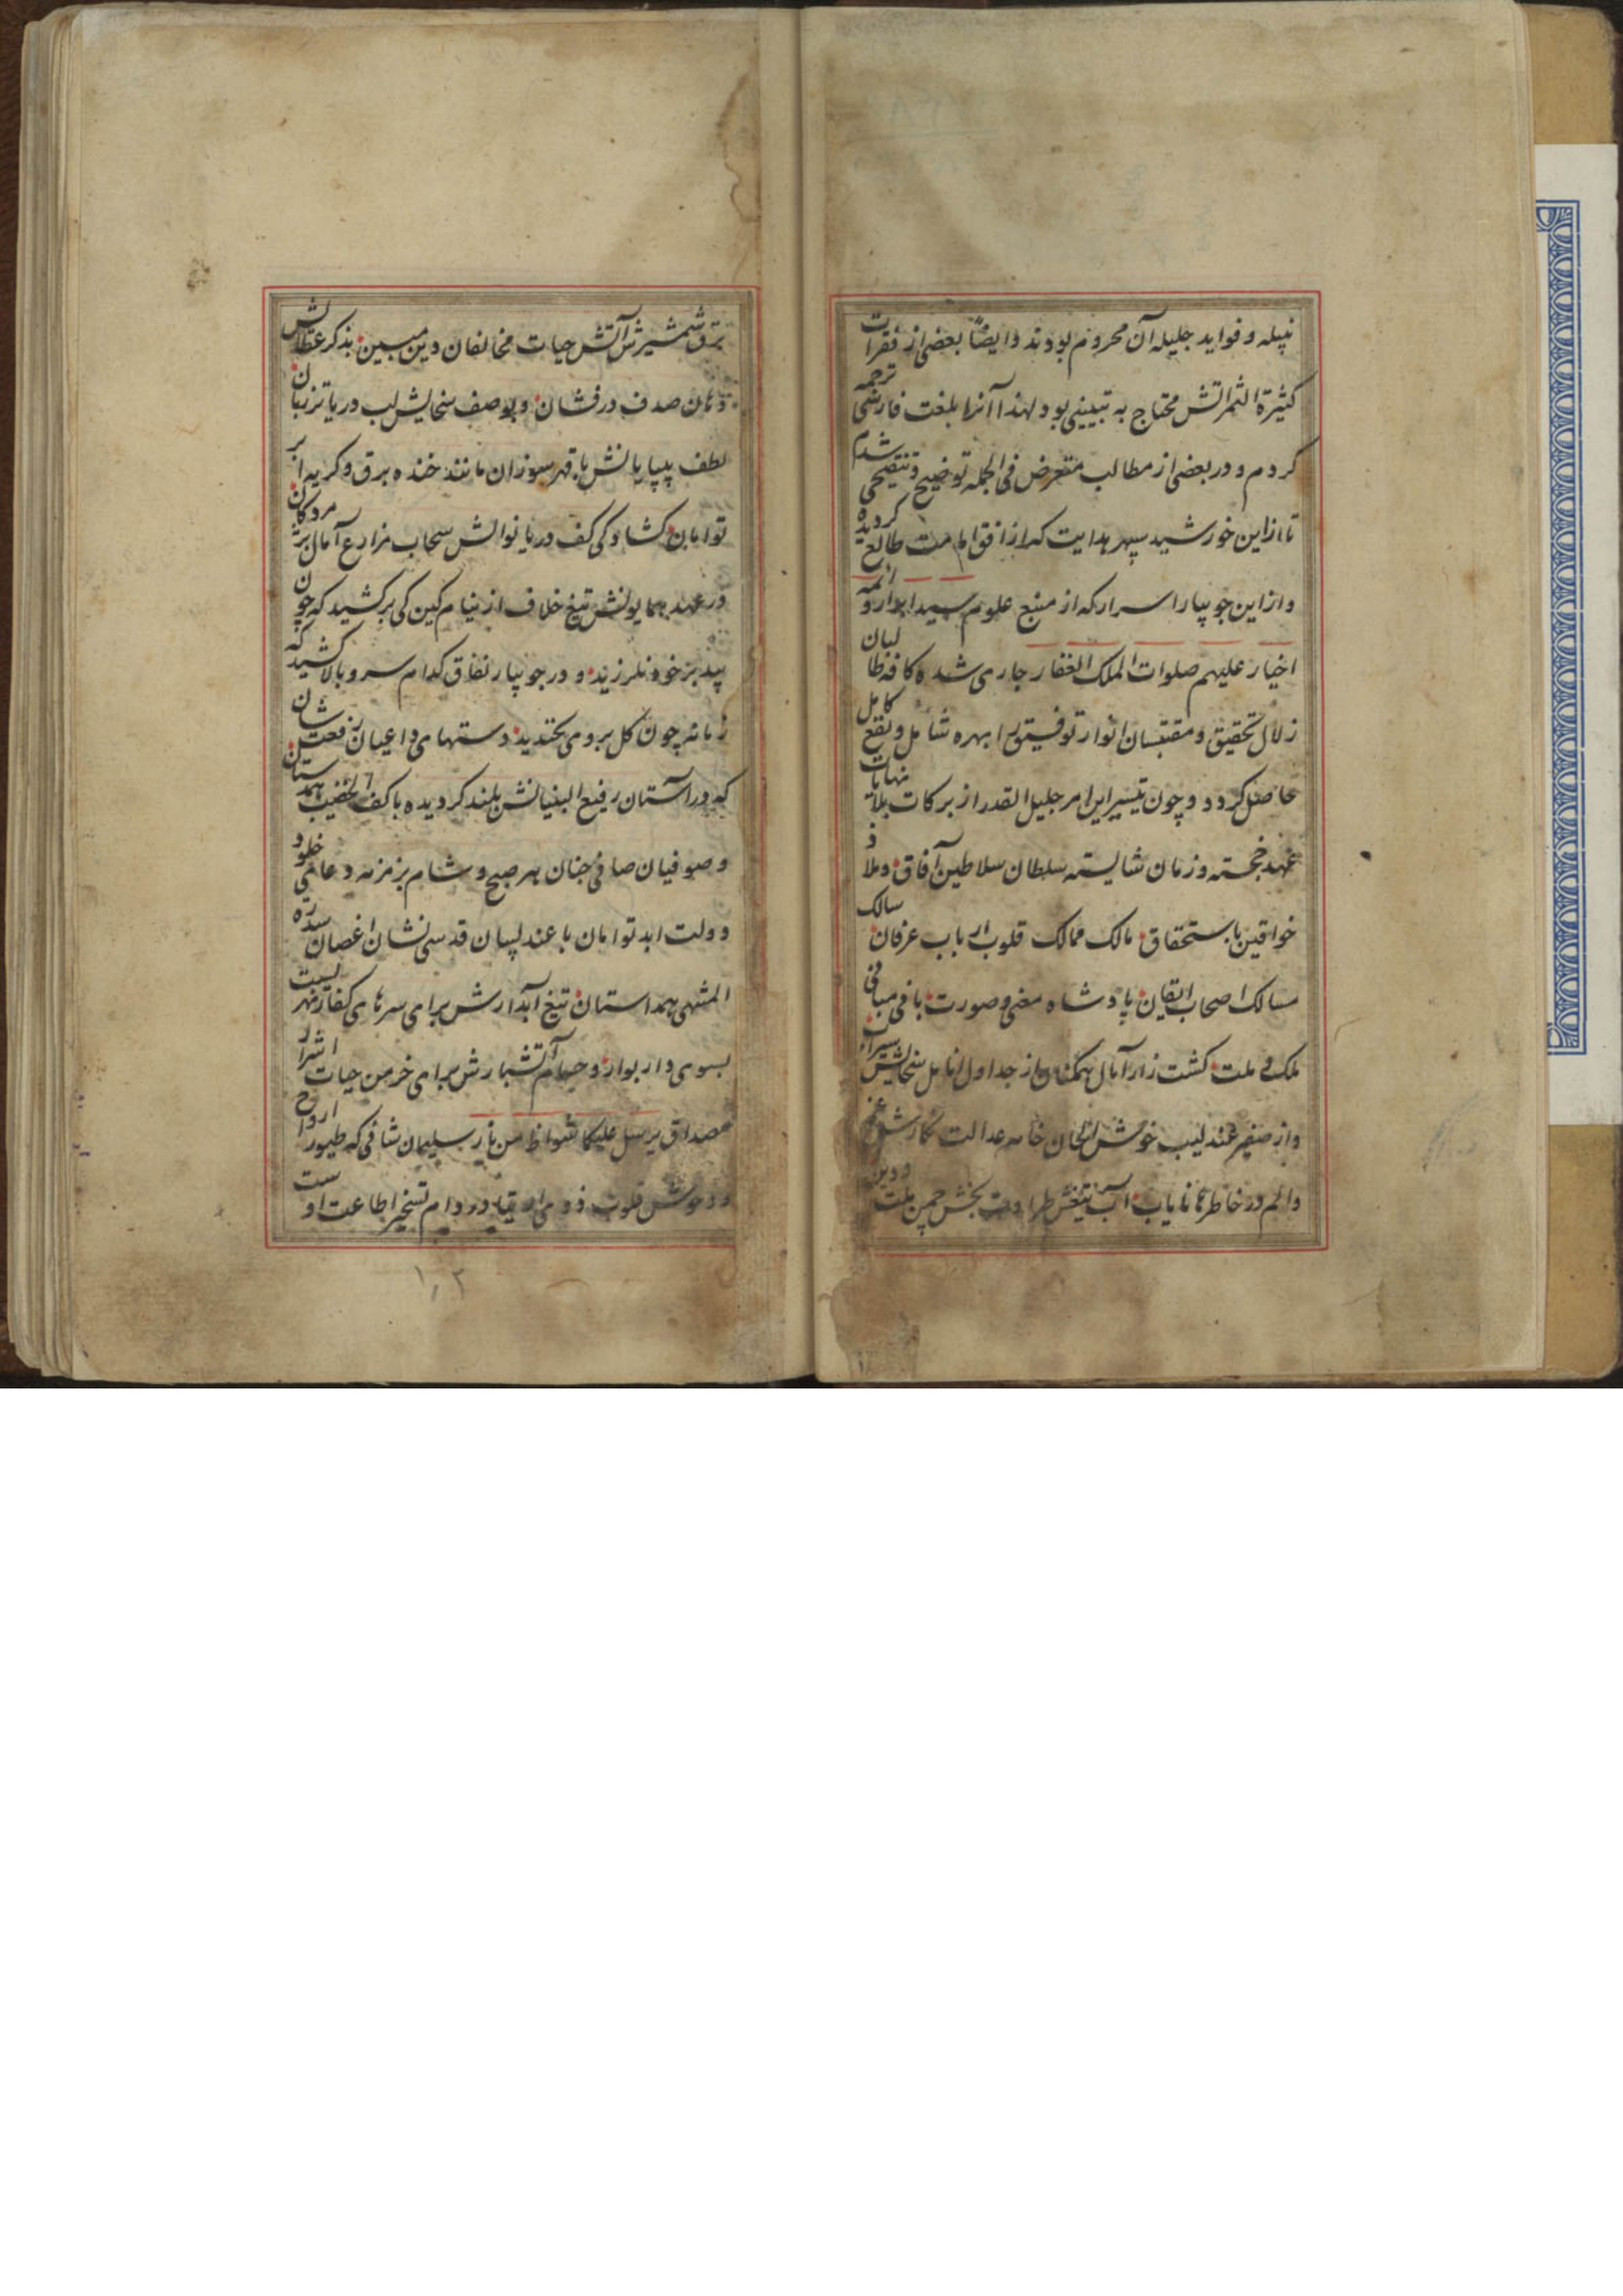 نبیله و فواید جلیله آن محروم بودند و ایضاً بعضی از فقرات
کثیرة الثمراتش محتاج به تبیینی بود لهذا آنرا بلغت فارسی ترجمه
کردم و در بعضی از مطالب متعرض فی الجمله توضیح و تنقیحی شدم
تا از این خورشید سپهر هدایت که از افق امامت طالع گردیده
و از این جویبار اسرار که از منبع علوم سید ابرار و ائمه
اخیار علیهم صلوات الملک الغفار جاری شده کافه طالبان
زلال تحقیق و مقتبسان انوار توفیق را بهره شامل و نفع کامل
حاصل کردد و چون تیسیر این امر جلیل القدر از برکات بلا نهایات
عهد خجسته و زمان شایسته سلطان سلاطین آفاق و ملاذ
خواقین باستحقاق مالک ممالک قلوب ارباب عرفان سالک
مسالک اصحاب ایقان پادشاه معنی و صورت بانی مبانی
ملک و ملت کشت زار آمال همکنان از جداول انامل سخایش سیراب
و از صفیر عندلیب خوش الحان خامه عدالت نگارش غم
و الم در خاطرها نایاب آب تیغش طراوت بخش چمن ملت و دین
برق شمشیرش آتش حیات مخالفان دین مبین بذکر عطایش
دهان صدف درفشان و بوصف سخایش لب دریا تر زبان
لطف بی‌پایانش با قهر سوزان مانند خنده برق و کریه ابر
توامان کشادکی کف دریا نوالش سحاب مزارع آمال پژمردکان
در عهد همایونش تیغ خلاف از نیام کین کی برکشید که چون
بید بر خود نلرزید و در جویبار نفاق کدام سرو بالا کشید که
زمانه چون کل بر وی نخندید دستهای داعیان رفعت شان
که در آستان رفیع البنیانش بلند کردیده با کف الخضیب همدستان
و صوفیان صافی جنان هر صبح و شام بزمزمه دعای خلود
دولت ابد توامان با عندلیبان قدسی نشان اغصان سدرة
المنتهی همداستان تیغ آبدارش برای سرهای کفار نهریست
بسوی دار بوار و حسام آتشبارش برای خرمن حیات اشرار
مصداق یرسل علیکما شواظ من نار سلیمان شانی که طیور ارواح
و وحوش قلوب در دام تسخیر اطاعت اوست
۱۰۲